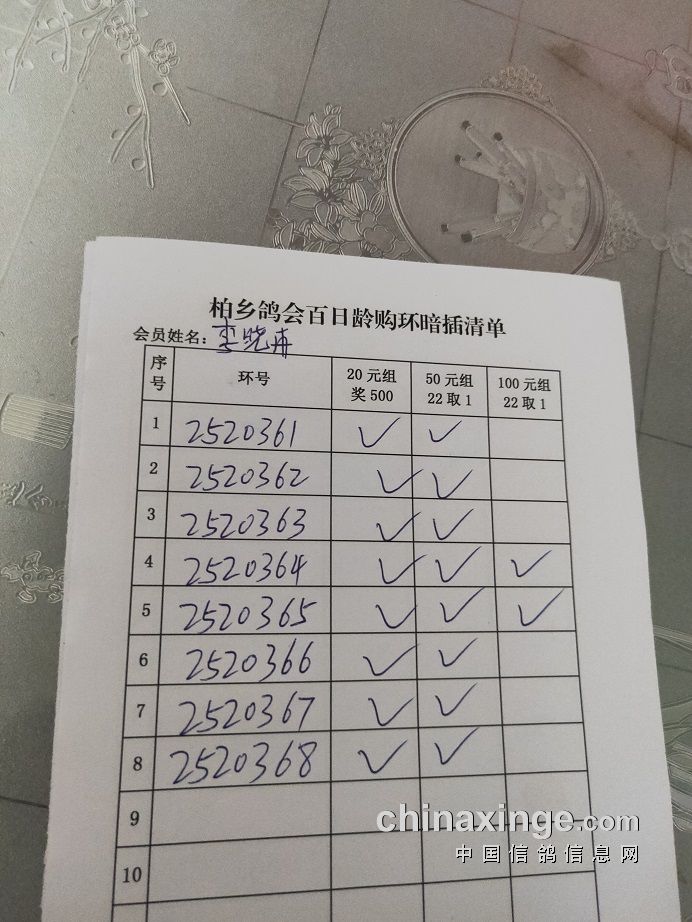 柏乡鸽会百日龄购环暗插清单
会员姓名：李晓冉
序号 环号 20元组奖500 50元组22取1 100元组22取1
1 2520361 ✓ ✓
2 2520362 ✓ ✓
3 2520363 ✓ ✓
4 2520364 ✓ ✓ ✓
5 2520365 ✓ ✓ ✓
6 2520366 ✓ ✓
7 2520367 ✓ ✓
8 2520368 ✓ ✓
9
10
chinaxinge.com
中国信鸽信息网